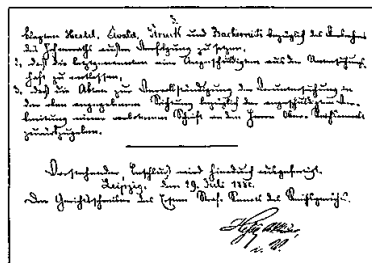 3.
klagten Heckel, Ewald, Struck und Backovitz bezüglich des Verbrechens
des Hochverraths außer Verfolgung zu setzen,
2, daß die letztgenannten Angeschuldigten aus der Untersuchungs
haft zu entlassen,
3, daß die Akten zur Vervollständigung der Voruntersuchung in
der oben angegebenen Richtung bezüglich der
breitung einer verbotenen Schrift an den Herrn Ober-Reichsanwalt
zurückzugeben.
Vorstehender Beschluß wird hierdurch ausgefertigt.
Leipzig, den 29. Juli 188
Der Gerichtsschreiber des Ersten Straf-Senats des Reichsgerichts.
i. V.